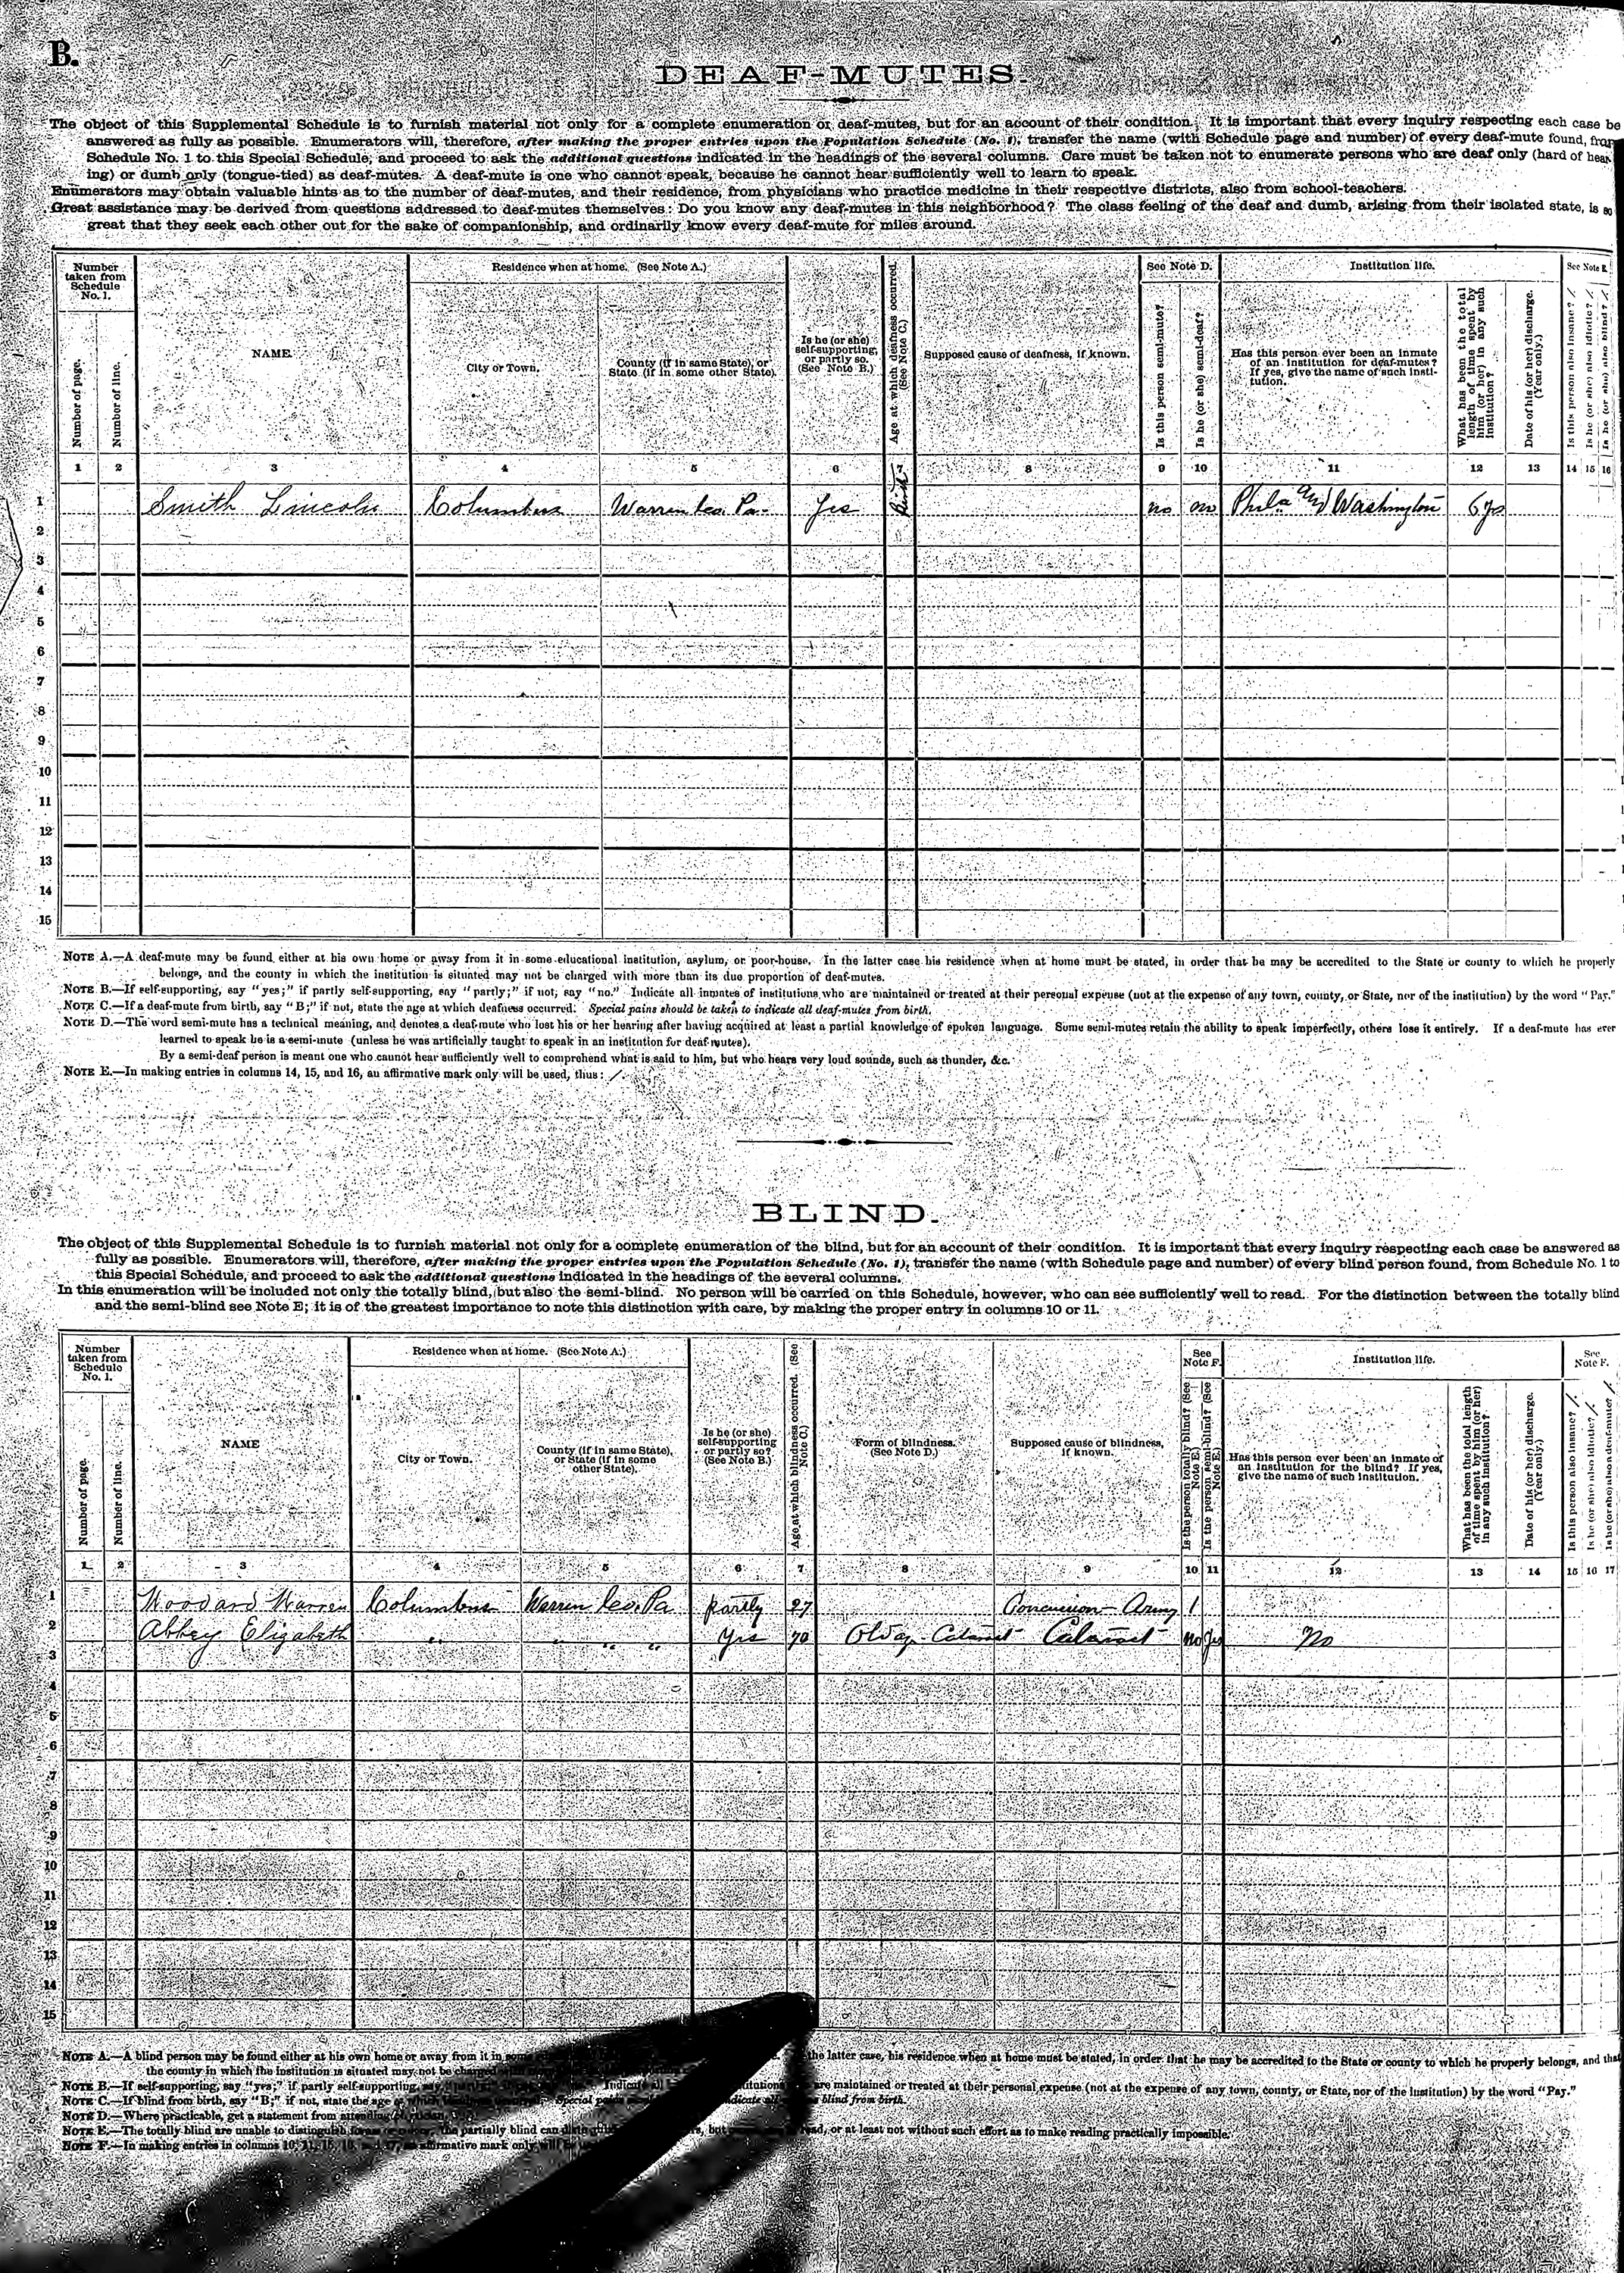 B.
DEAF-MUTES.
The object of this Supplemental Schedule is to furnish material not only for a complete enumeration of deaf-mutes, but for an account of their condition. It is important that every inquiry respecting each case be
answered as fully as possible. Enumerators will, therefore, after making the proper entries upon the Population Schedule (No. 1), transfer the name (with Schedule page and number) of every deaf-mute found, from
Schedule No. 1 to this Special Schedule, and proceed to ask the additional questions indicated in the headings of the several columns. Care must be taken not to enumerate persons who are deaf only (hard of hear-
ing) or dumb only (tongue-tied) as deaf-mutes. A deaf-mute is one who cannot speak, because he cannot hear sufficiently well to learn to speak.
Enumerators may obtain valuable hints as to the number of deaf-mutes, and their residence, from physicians who practice medicine in their respective districts, also from school-teachers.
Great assistance may be derived from questions addressed to deaf-mutes themselves: Do you know any deaf-mutes in this neighborhood? The class feeling of the deaf and dumb, arising from their isolated state, is so
great that they seek each other out for the sake of companionship, and ordinarily know every deaf-mute for miles around.
Number taken from Schedule No. 1.
Number of page.
Number of line.
NAME.
Residence when at home. (See Note A.)
City or Town.
County (if in same State), or State (if in some other State).
Is he (or she) self-supporting, or partly so. (See Note B.)
Age at which deafness occurred. (See Note C.)
Supposed cause of deafness, if known.
See Note D.
Is this person semi-mute?
Is he (or she) semi-deaf?
Institution life.
Has this person ever been an inmate of an institution for deaf-mutes? If yes, give the name of such institution.
What has been the total length of time spent by him (or her) in any such institution?
Date of his (or her) discharge. (Year only.)
See Note E.
Is this person also insane? /
Is he (or she) also idiotic? /
Is he (or she) also blind? /
1 2 3 4 5 6 7 8 9 10 11 12 13 14 15 16
1 Smith Lincoln Columbus Warren Co. Pa. Yes Birth no no Phila and Washington 6 ys
2
3
4
5
6
7
8
9
10
11
12
13
14
15
NOTE A.—A deaf-mute may be found either at his own home or away from it in some educational institution, asylum, or poor-house. In the latter case his residence when at home must be stated, in order that he may be accredited to the State or county to which he properly
belongs, and the county in which the institution is situated may not be charged with more than its due proportion of deaf-mutes.
NOTE B.—If self-supporting, say "yes;" if partly self-supporting, say "partly;" if not, say "no." Indicate all inmates of institutions who are maintained or treated at their personal expense (not at the expense of any town, county, or State, nor of the institution) by the word "Pay."
NOTE C.—If a deaf-mute from birth, say "B;" if not, state the age at which deafness occurred. Special pains should be taken to indicate all deaf-mutes from birth.
NOTE D.—The word semi-mute has a technical meaning, and denotes a deaf-mute who lost his or her hearing after having acquired at least a partial knowledge of spoken language. Some semi-mutes retain the ability to speak imperfectly, others lose it entirely. If a deaf-mute has ever
learned to speak he is a semi-mute (unless he was artificially taught to speak in an institution for deaf-mutes).
By a semi-deaf person is meant one who cannot hear sufficiently well to comprehend what is said to him, but who hears very loud sounds, such as thunder, &c.
NOTE E.—In making entries in columns 14, 15, and 16, an affirmative mark only will be used, thus: /.
BLIND.
The object of this Supplemental Schedule is to furnish material not only for a complete enumeration of the blind, but for an account of their condition. It is important that every inquiry respecting each case be answered as
fully as possible. Enumerators will, therefore, after making the proper entries upon the Population Schedule (No. 1), transfer the name (with Schedule page and number) of every blind person found, from Schedule No. 1 to
this Special Schedule, and proceed to ask the additional questions indicated in the headings of the several columns.
In this enumeration will be included not only the totally blind, but also the semi-blind. No person will be carried on this Schedule, however, who can see sufficiently well to read. For the distinction between the totally blind
and the semi-blind see Note E; it is of the greatest importance to note this distinction with care, by making the proper entry in columns 10 or 11.
Number taken from Schedule No. 1.
Number of page.
Number of line.
NAME
Residence when at home. (See Note A.)
City or Town.
County (if in same State), or State (if in some other State).
Is he (or she) self-supporting or partly so? (See Note B.)
Age at which blindness occurred. (See Note C.)
Form of blindness. (See Note D.)
Supposed cause of blindness, if known.
See Note F.
Is the person totally blind? (See Note E.)
Is the person semi-blind? (See Note E.)
Institution life.
Has this person ever been an inmate of an institution for the blind? If yes, give the name of such institution.
What has been the total length of time spent by him (or her) in any such institution?
Date of his (or her) discharge. (Year only.)
See Note F.
Is this person also insane? /
Is he (or she) also idiotic? /
Is he (or she) also deaf-mute? /
1 2 3 4 5 6 7 8 9 10 11 12 13 14 15 16 17
1 Woodard Warren Columbus Warren Co. Pa partly 27 Concussion - Army /
2 Abbey Elizabeth " " " Yes 70 Old age - Cataract Cataract No Yes No
3
4
5
6
7
8
9
10
11
12
13
14
15
NOTE A.—A blind person may be found either at his own home or away from it in some the latter case, his residence when at home must be stated, in order that he may be accredited to the State or county to which he properly belongs, and that
the county in which the institution is situated may not be charged
NOTE B.—If self-supporting, say "yes;" if partly self-supporting, say Indicate all are maintained or treated at their personal expense (not at the expense of any town, county, or State, nor of the institution) by the word "Pay."
NOTE C.—If blind from birth, say "B;" if not, state the age Special pains blind from birth.
NOTE D.—Where practicable, get a statement from attending
NOTE E.—The totally blind are unable to distinguish partially blind can read, or at least not without such effort as to make reading practically impossible.
NOTE F.—In making entries in columns 10, 11, affirmative mark only will be